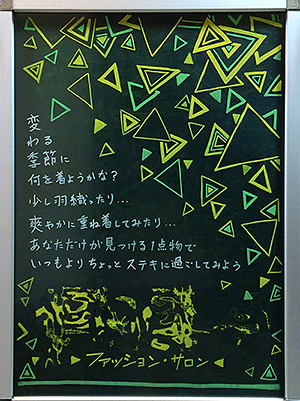 変
わる
季節に
何を着ようかな?
少し羽織ったり...
爽やかに重ね着してみたり...
あなただけが見つける1点物で
いつもよりちょっとステキに過ごしてみよう
ファッション・サロン